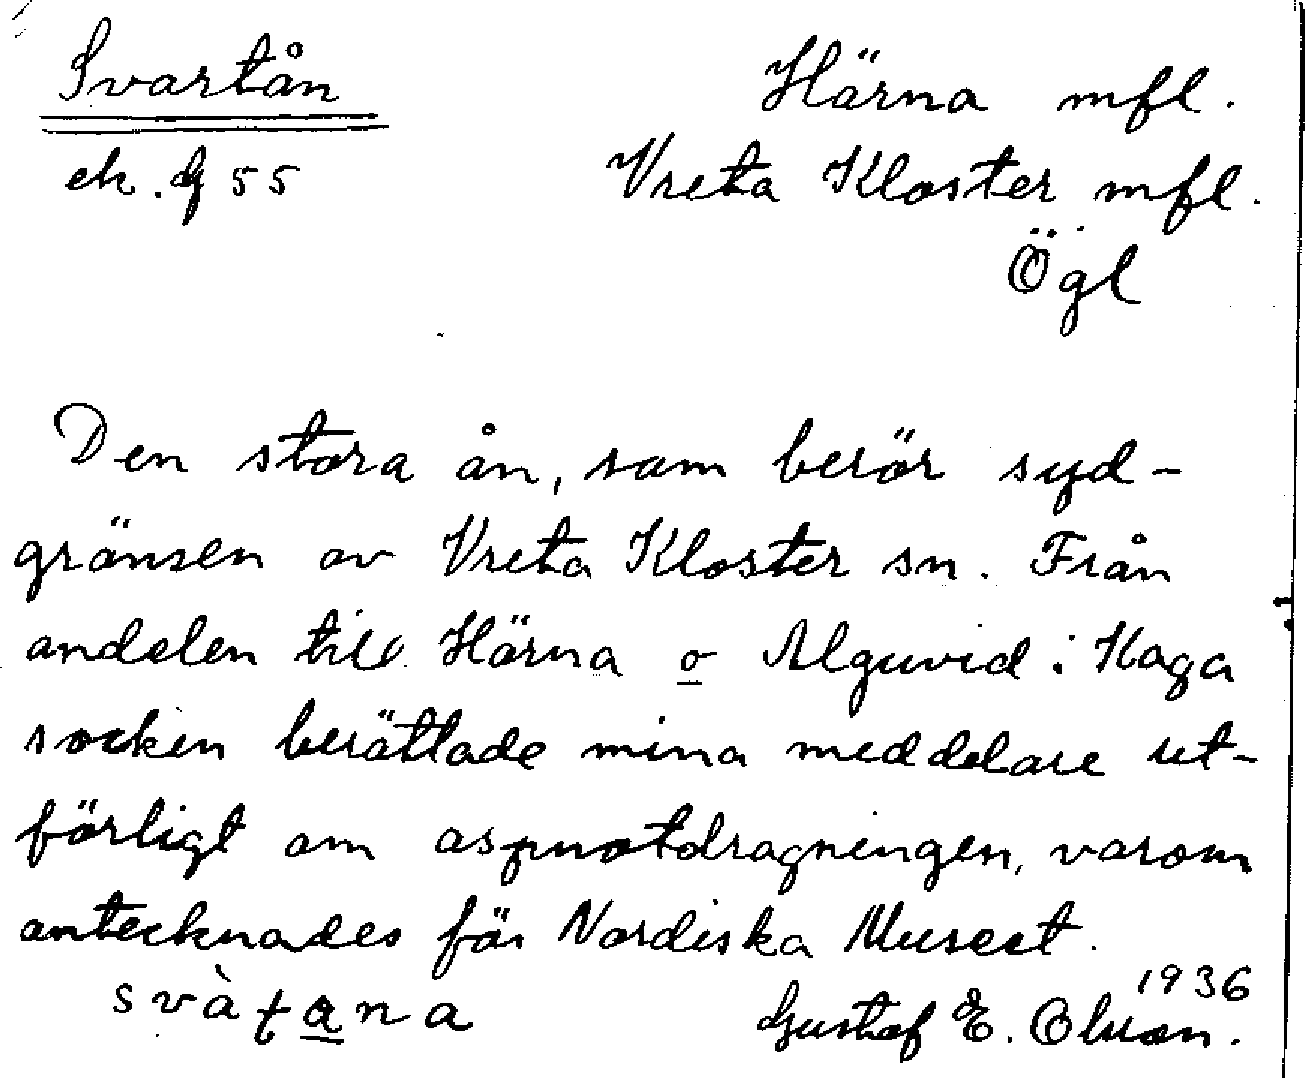 Svartån
Härna mfl.
ek. G 55
Vreta Kloster mfl.
Ögl
Den stora ån, som berör syd-
gränsen av Vreta Kloster sn. Från
andelen till Härna o Alguvid i Kaga
socken berättade mina meddelare ut-
förligt om aspnotdragningen, varom
antecknades för Nordiska Museet.
1936
svàtana
Gustaf E. Olsson.